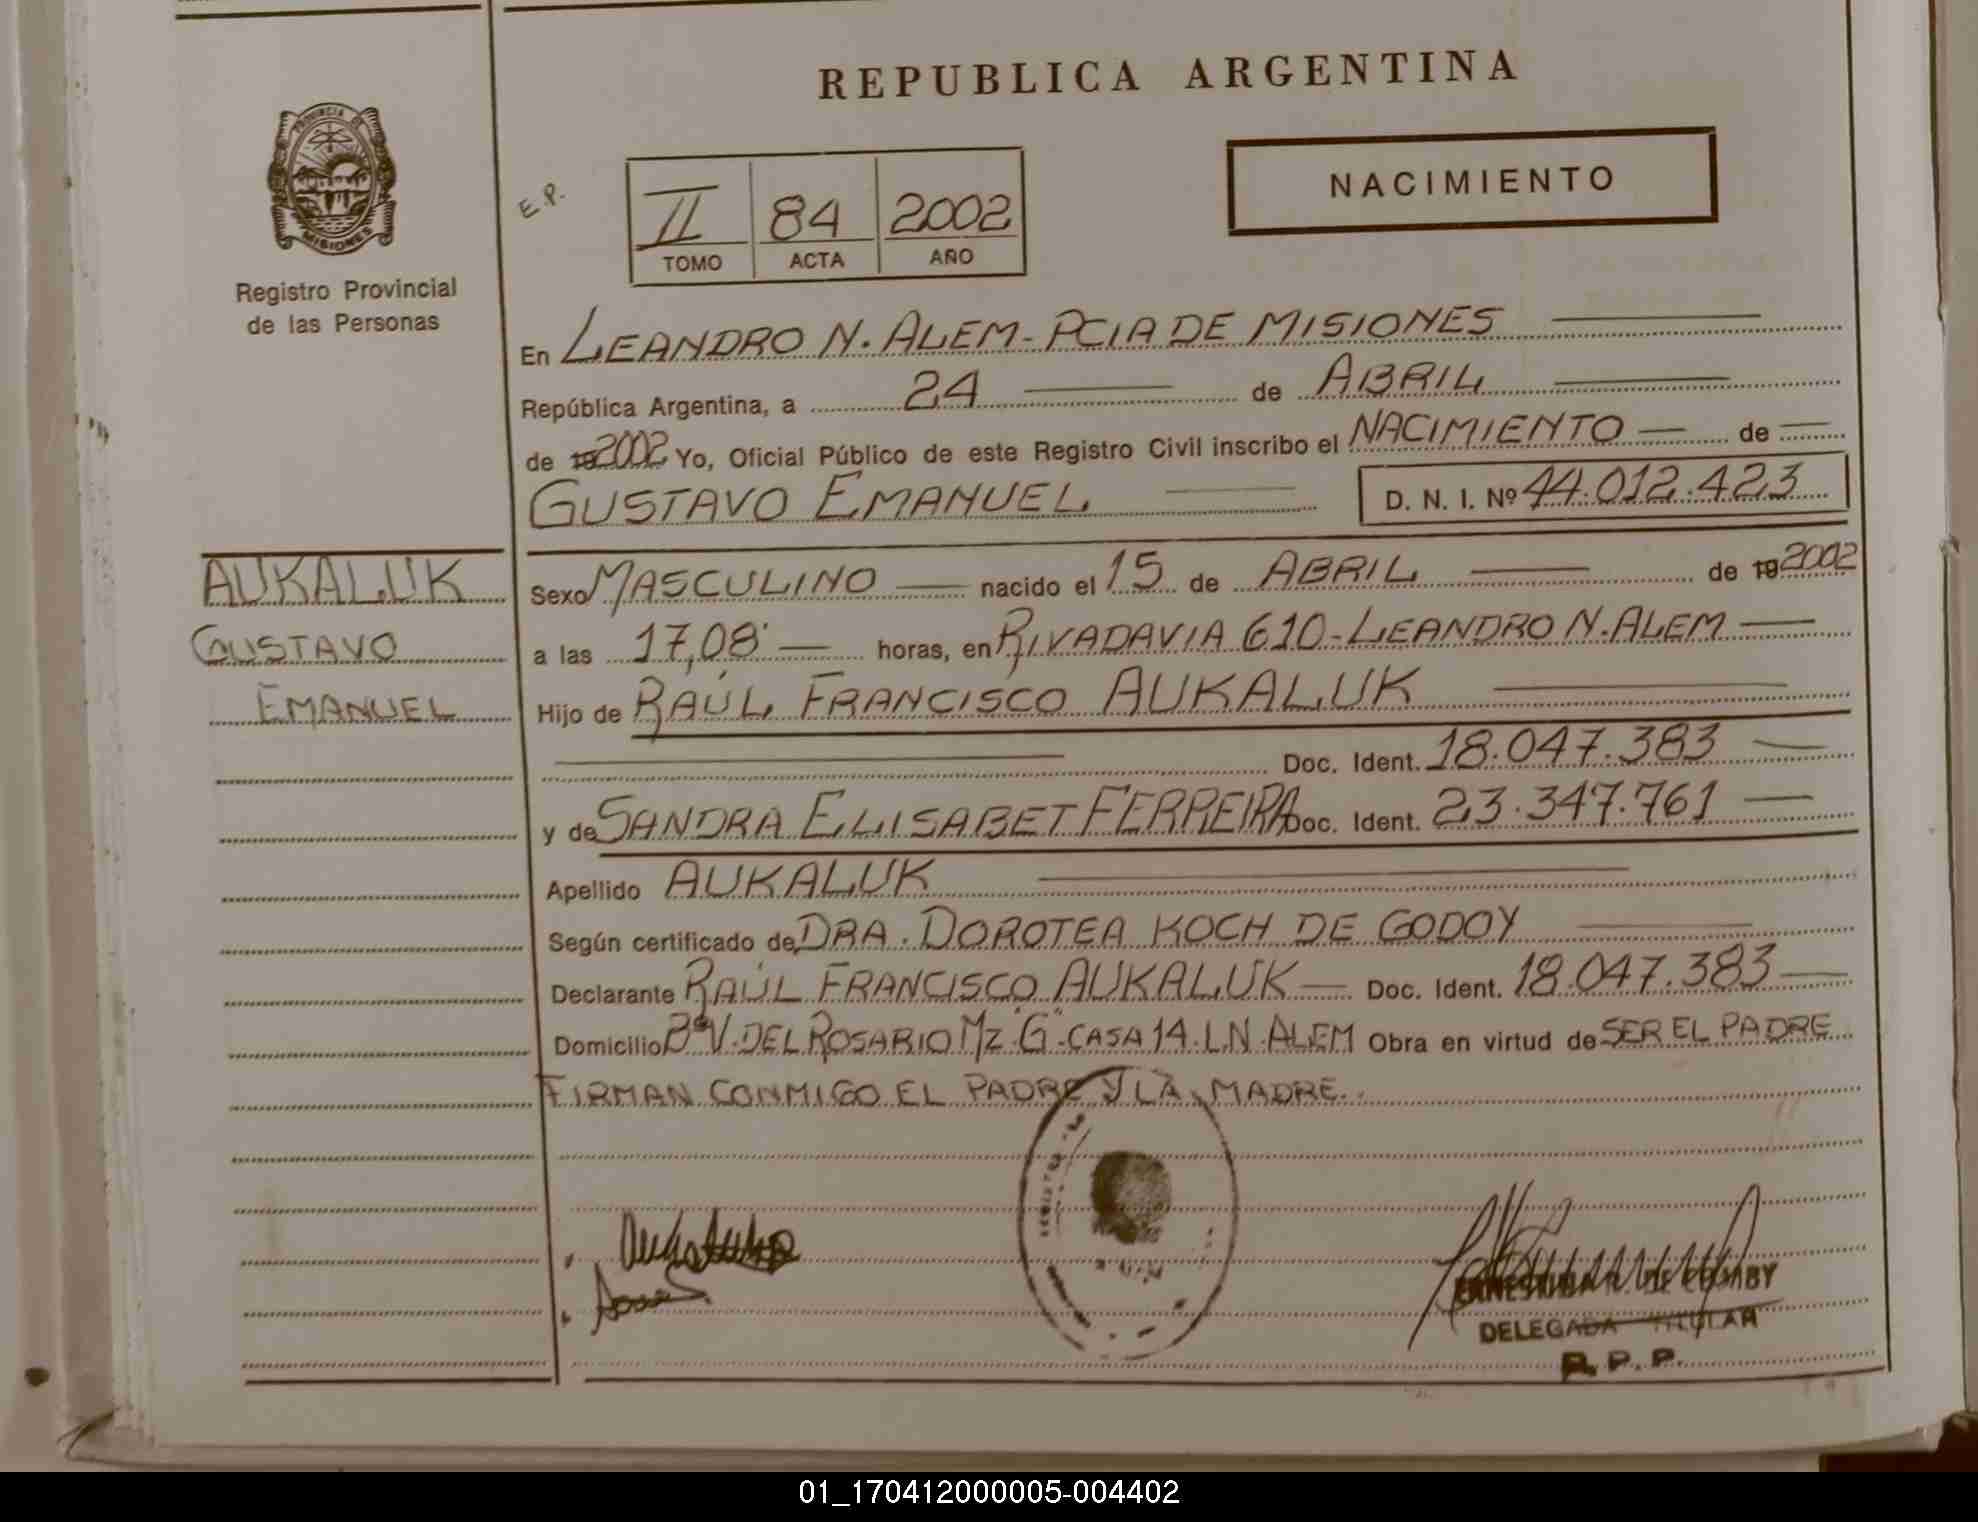 REPUBLICA ARGENTINA
PROVINCIA DE
MISIONES
Registro Provincial
de las Personas
E.P.
II 84 2002
TOMO ACTA AÑO
NACIMIENTO
En LEANDRO N. ALEM - PCIA DE MISIONES
República Argentina, a 24 de ABRIL
de 192002 Yo, Oficial Público de este Registro Civil inscribo el NACIMIENTO de
GUSTAVO EMANUEL D. N. I. Nº 44.012.423
AUKALUK
GUSTAVO
EMANUEL
Sexo MASCULINO nacido el 15 de ABRIL de 192002
a las 17,08' horas, en RIVADAVIA 610 - LEANDRO N. ALEM
Hijo de RAÚL FRANCISCO AUKALUK
Doc. Ident. 18.047.383
y de SANDRA ELISABET FERREIRA Doc. Ident. 23.347.761
Apellido AUKALUK
Según certificado de DRA. DOROTEA KOCH DE GODOY
Declarante RAÚL FRANCISCO AUKALUK Doc. Ident. 18.047.383
Domicilio Bº V. DEL ROSARIO MZ "G" CASA 14 - L.N. ALEM Obra en virtud de SER EL PADRE
FIRMAN CONMIGO EL PADRE Y LA MADRE.
DE
DELEGADA TITULAR
R.P.P.
01_170412000005-004402